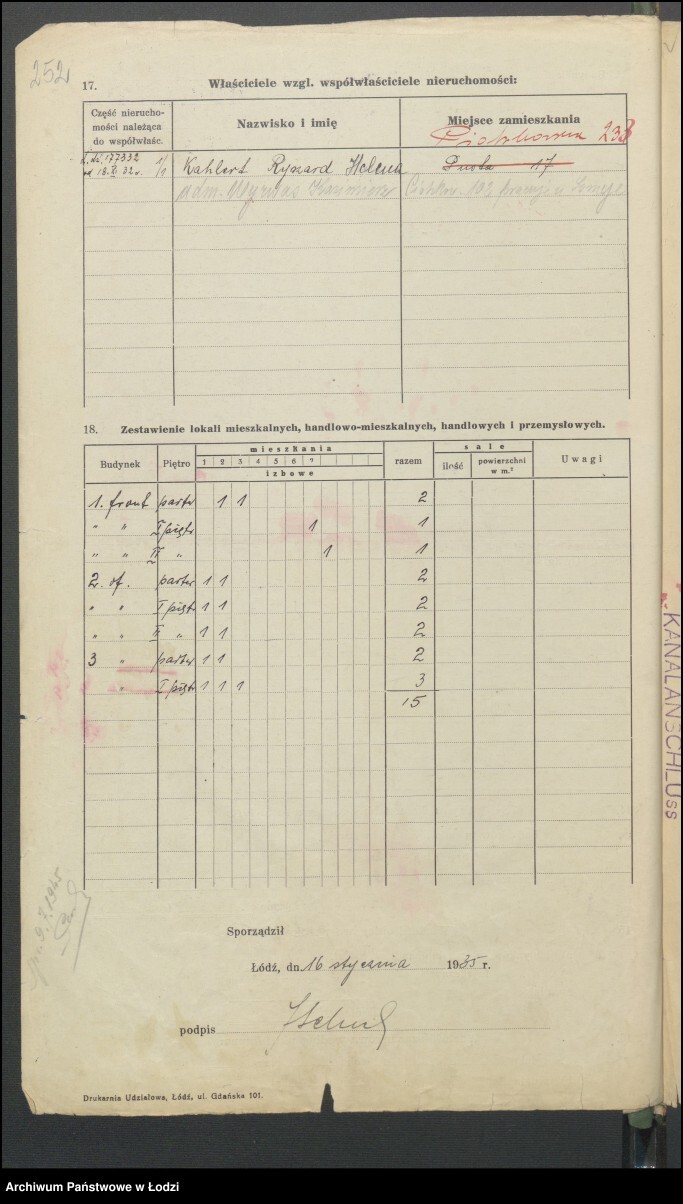 252
17. Właściciele wzgl. współwłaściciele nieruchomości:
Część nierucho-
mości należąca
do współwłaśc.
Nazwisko i imię
Miejsce zamieszkania
Piotrkowska 233
L. dz. 177332 1/1
od 18.X 32 r.
Kahlert Ryszard Helena
Pusta 17
adm. Kazimierz
18. Zestawienie lokali mieszkalnych, handlowo-mieszkalnych, handlowych i przemysłowych.
Budynek Piętro mieszkania razem sale Uwagi
1 2 3 4 5 6 7
izbowe
ilość powierzchni w m.²
1. front parter 1 1 2
" " I piętr 1 1
" " II " 1 1
2. of. parter 1 1 2
" " I piętr 1 1 2
" " II " 1 1 2
3 " parter 1 1 2
" I piętr 1 1 1 3
15
Sporządził
Łódź, dn. 16 stycznia 1935 r.
podpis
9.7.1945
Drukarnia Udziałowa, Łódź, ul. Gdańska 101.
KANALANSCHLUSS
Archiwum Państwowe w Łodzi